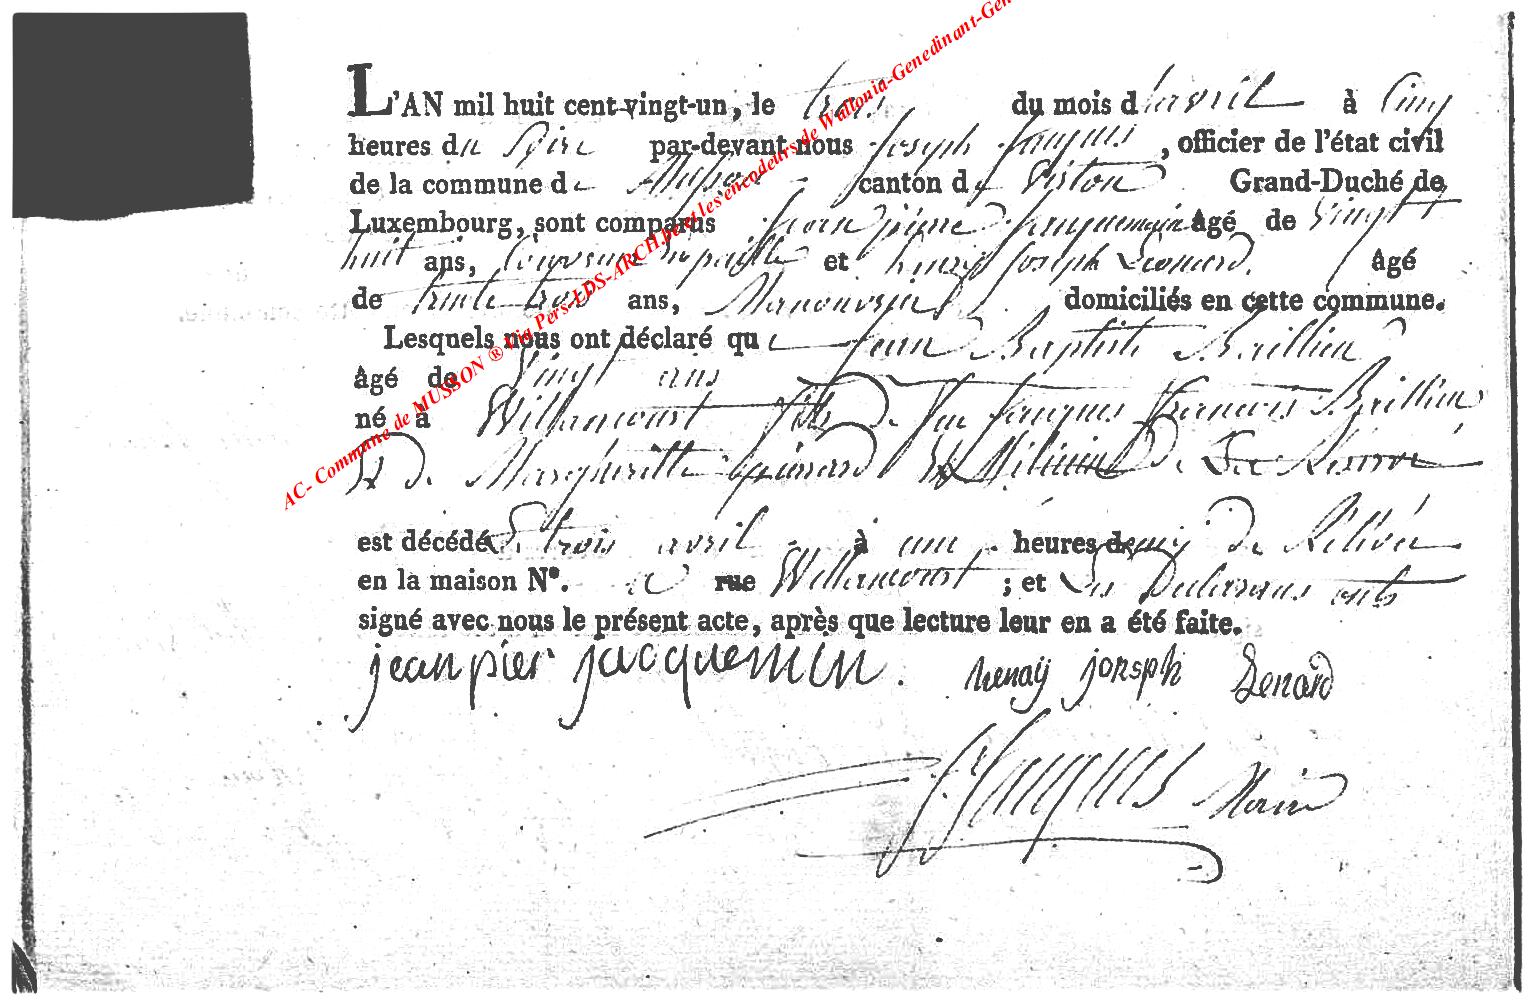 L'AN mil huit cent vingt-un, le trois du mois d'avril à Cinq
heures du Soire par-devant nous Joseph Jacques, officier de l'état civil
de la commune de Musson canton de Virton Grand-Duché de
Luxembourg, sont comparus Jean pierre Jacquemin âgé de Vingt
huit ans, Couvreur de paille et henry Joseph Leonard âgé
de trente trois ans, Manouvrier domiciliés en cette commune.
Lesquels nous ont déclaré que Jean Baptiste Baillieu
âgé de Vingt ans
né à Willancourt fils de feu Jacques francois Baillieu
et de Margueritte Milicien de La Réserve
est décédé le trois avril à une heures de Relévée
en la maison N°. rue Willancourt ; et Les Declarans onts
signé avec nous le présent acte, après que lecture leur en a été faite.
jean pier jacquemin. henay jonseph Lenard
J Jacques Maire
AC- Commune de MUSSON ® Via Pers-LDS-ARCH.be et les encodeurs de Wallonia-Genedinant-Gen